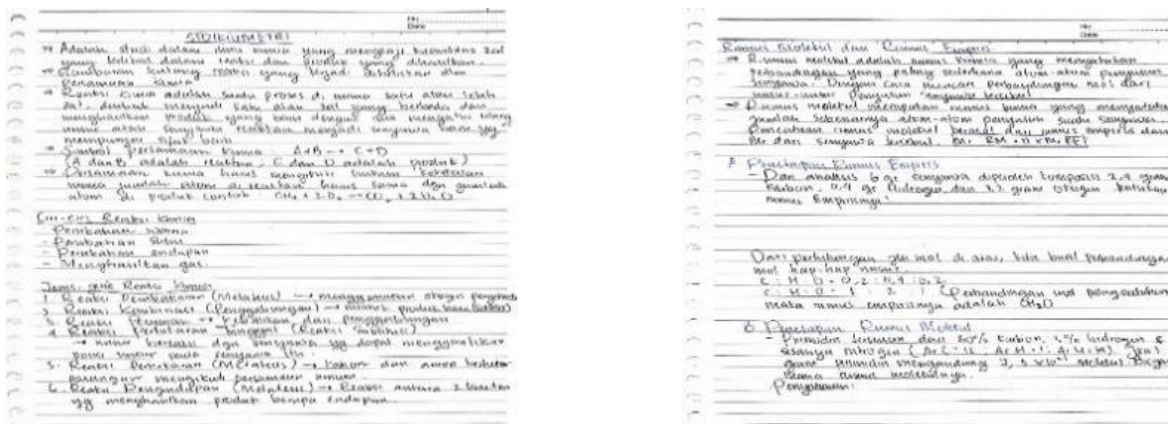 No
Date
STOIKIOMETRI
Adalah studi dalam ilmu kimia yang mengkaji kuantitas zat
yang terlibat dalam reaksi dan produk yang dihasilkan.
Gambaran tentang reaksi yang terjadi dituliskan dlm
Persamaan kimia
Reaksi kimia adalah suatu proses di mana satu atau lebih
zat, diubah menjadi satu atau zat yang berbeda dan
menghasilkan produk yang baru dengan cara mengatur ulang
unsur atau senyawa menjadi senyawa baru yg
mempunyai sifat baru
Simbol persamaan kimia : A+B → C+D
(A dan B adalah reaktan, C dan D adalah produk)
Persamaan kimia harus mengikuti hukum kekekalan
massa jumlah atom di reaktan harus sama dgn jumlah
atom di produk contoh : CH4 + 2O2 → CO2 + 2H2O
Ciri-ciri Reaksi Kimia
- Perubahan warna
- Perubahan Suhu
- Perubahan endapan
- Menghasilkan gas.
Jenis-jenis Reaksi Kimia
1. Reaksi Pembakaran (Metatesis) → menggunakan oksigen
2. Reaksi Kombinasi (Penggabungan) → produk baru
3. Reaksi → dan penggabungan
4. Reaksi Pertukaran Tunggal (Reaksi Subtitusi)
→ unsur bereaksi dgn senyawa yg dapat menggantikan
posisi unsur pada senyawa itu.
5. Reaksi (Metatesis) → kation dan anion bertukar
pasangan mengikuti persamaan umum
6. Reaksi Pengendapan (Metatesis) → Reaksi antara 2 larutan
yg menghasilkan produk berupa endapan.
No
Date
Rumus Molekul dan Rumus Empiris
Rumus molekul adalah rumus kimia yang menyatakan
perbandingan yang paling sederhana atom-atom penyusun
senyawa. Dengan cara mencari perbandingan mol dari
unsur-unsur penyusun senyawa tersebut
Rumus molekul merupakan rumus kimia yang menyatakan
jumlah sebenarnya atom-atom penyusun suatu senyawa.
Penentuan rumus molekul berasal dari rumus empiris dan
Mr dari senyawa tersebut. Mr RM = n x Mr RE
Penetapan Rumus Empiris
- Dari analisis 6 gr senyawa diperoleh komposisi 2,4 gram
karbon, 0,4 gr hidrogen, dan 3,2 gram oksigen. tentukan
rumus Empirisnya!
Dari perhitungan mol di atas, kita buat perbandingan
mol tiap-tiap unsur.
C : H : O = 0,2 : 0,4 : 0,2
C : H : O = 1 : 2 : 1 (Perbandingan mol paling sederhana
maka rumus empirisnya adalah CH2O
B. Penetapan Rumus Molekul
- Pirimidin tersusun dari 50% karbon, 5% hidrogen &
sisanya nitrogen
gram pirimidin mengandung molekul
rumus molekulnya.
Penyelesaian :